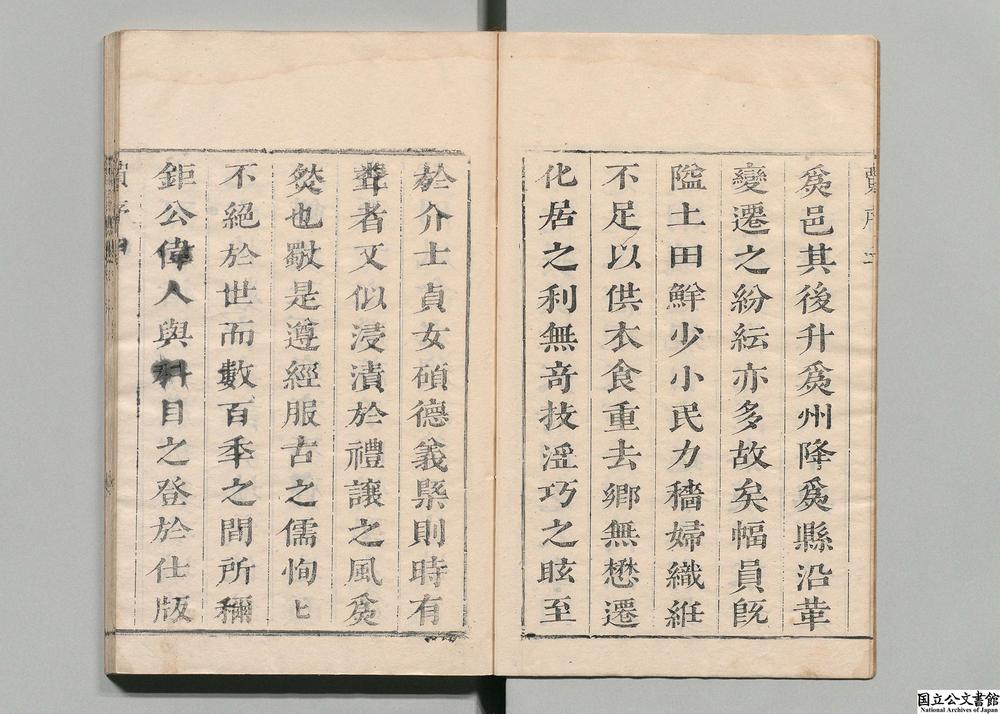 爲邑其後升爲州降爲縣沿革
變遷之紛紜亦多故矣幅員旣
隘土田鮮少小民力穡婦織絍
不足以供衣食重去鄉無懋遷
化居之利無竒技滛巧之眩至
於介士貞女碩德義槩則時有
聋者又似浸漬於禮讓之風爲
㷊也歟是遵經服古之儒恂匕
不絕於世而數百季之間所稱
鉅公偉人與科目之登於仕版
賈序四
国立公文書館
National Archives of Japan